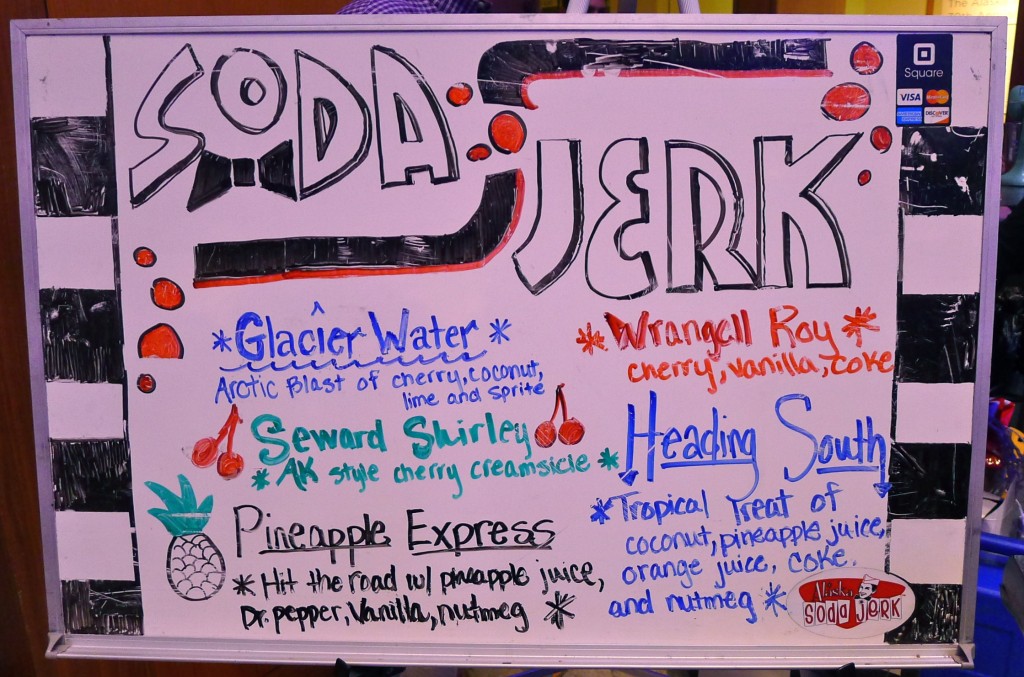 SODA
JERK
Square
VISA
MasterCard
DISCOVER
*Glacier Water*
Arctic Blast of cherry, coconut,
lime and sprite
*Wrangell Roy*
cherry, vanilla, coke
Seward Shirley
*AK style cherry creamsicle*
Heading South
*Tropical Treat of
coconut, pineapple juice,
orange juice, coke.
and nutmeg*
Pineapple Express
*Hit the road w/ pineapple juice,
Dr. pepper, Vanilla, nutmeg*
Alaska
SODA JERK